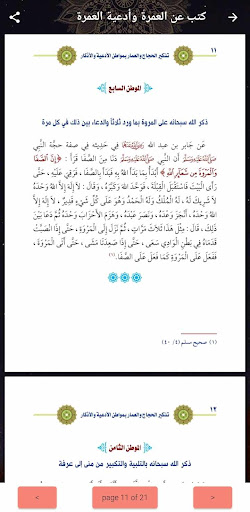 كتب عن العمرة وأدعية العمرة
تذكير الحجاج والعمار بمواطن الأدعية والأذكار
١١
الموطن السابع
ذكر الله سبحانه على المروة بما ورد ثلاثًا والدعاء بين ذلك في كل مرة
عَنْ جَابِرِ بن عبد الله في حَدِيثِهِ فِي صِفَةِ حَجَّةِ النَّبِيِّ
ﷺ أن النبي ﷺ دَنَا مِنَ الصَّفَا قَرَأَ : ﴿إِنَّ الصَّفَا
وَالْمَرْوَةَ مِن شَعَائِرِ اللَّهِ﴾ أَبْدَأُ بِمَا بَدَأَ اللهُ بِهِ فَبَدَأَ بِالصَّفَا ، فَرَقِيَ عَلَيْهِ ، حَتَّى
رَأَى الْبَيْتَ فَاسْتَقْبَلَ الْقِبْلَةَ ، فَوَحَّدَ اللهَ وَكَبَّرَهُ ، وَقَالَ : لَا إِلَهَ إِلَّا اللهُ وَحْدَهُ
لَا شَرِيكَ لَهُ ، لَهُ الْمُلْكُ وَلَهُ الْحَمْدُ وَهُوَ عَلَى كُلِّ شَيْءٍ قَدِيرٌ ، لَا إِلَهَ إِلَّا
اللهُ وَحْدَهُ ، أَنْجَزَ وَعْدَهُ ، وَنَصَرَ عَبْدَهُ ، وَهَزَمَ الْأَحْزَابَ وَحْدَهُ ثُمَّ دَعَا بَيْنَ
ذَلِكَ ، قَالَ : مِثْلَ هَذَا ثَلَاثَ مَرَّاتٍ ، ثُمَّ نَزَلَ إِلَى الْمَرْوَةِ ، حَتَّى إِذَا انْصَبَّتْ
قَدَمَاهُ فِي بَطْنِ الْوَادِي سَعَى ، حَتَّى إِذَا صَعِدَتَا مَشَى ، حَتَّى أَتَى الْمَرْوَةَ ،
فَفَعَلَ عَلَى الْمَرْوَةِ كَمَا فَعَلَ عَلَى الصَّفَا.(١)
(١) صحيح مسلم (٤/ ٤٠)
تذكير الحجاج والعمار بمواطن الأدعية والأذكار
١٢
الموطن الثامن
ذكر الله سبحانه بالتلبية والتكبير من منى إلى عرفة
<
page 11 of 21
>